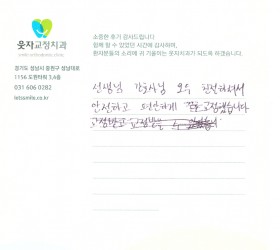 소중한 후기 감사드립니다
함께 할 수 있었던 시간에 감사하며,
환자분들의 소리에 귀 기울이는 웃자교정치과가 되도록 하겠습니다.
웃자교정치과
경기도 성남시 중원구 성남대로
1156 도원타워 3,4층
031 606 0282
letssmile.co.kr
선생님 간호사님 모두 친절하셔서
안전하고 편안하게 잘 교정했습니다
교정받고